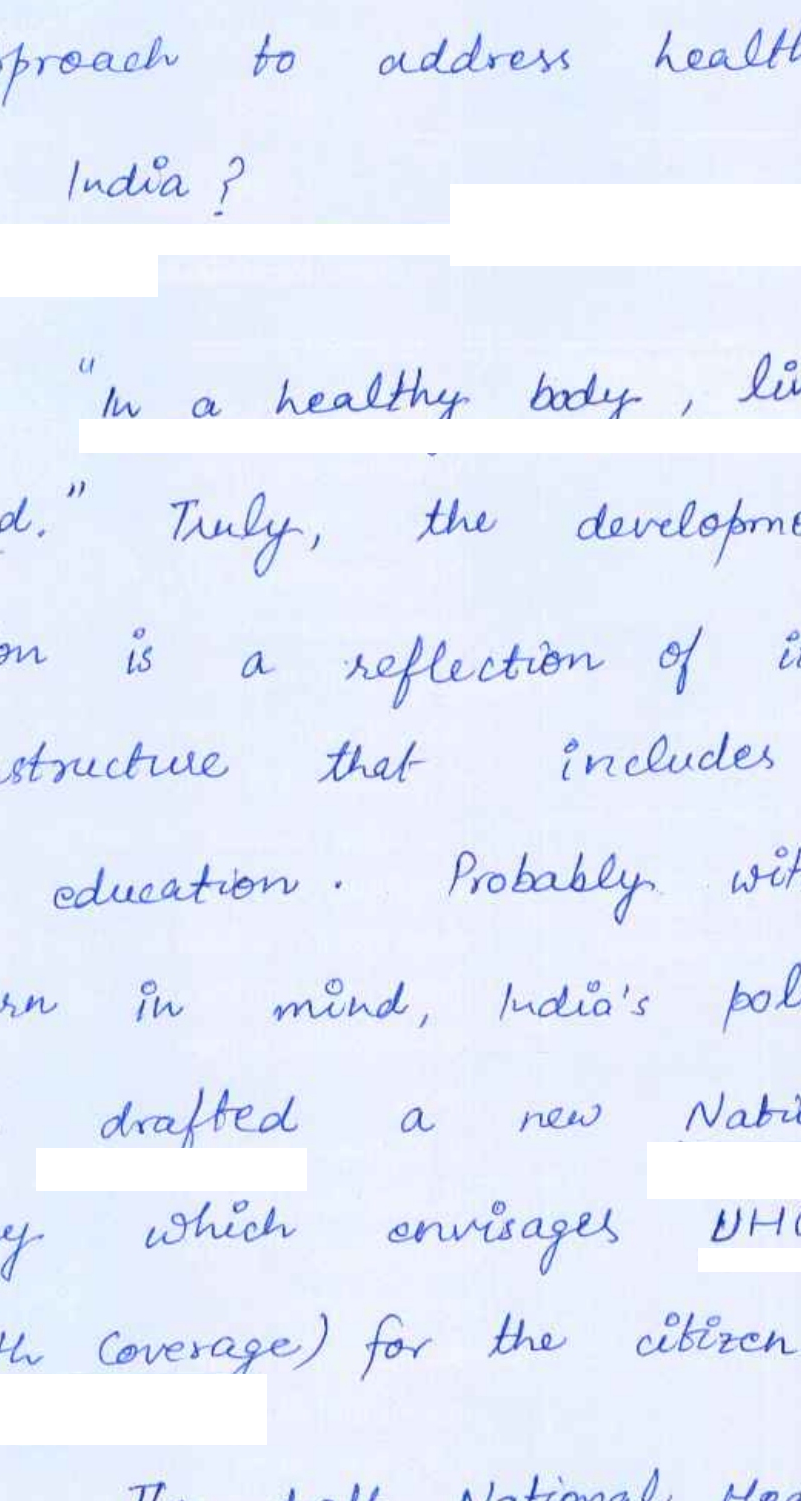 proach to address health
India ?
"In a healthy body , li
d." Truly, the developme
on is a reflection of i
structure that includes
education . Probably wit
rn in mind, India's pol
drafted a new Nati
y which envisages UHC
th Coverage) for the citizen
National